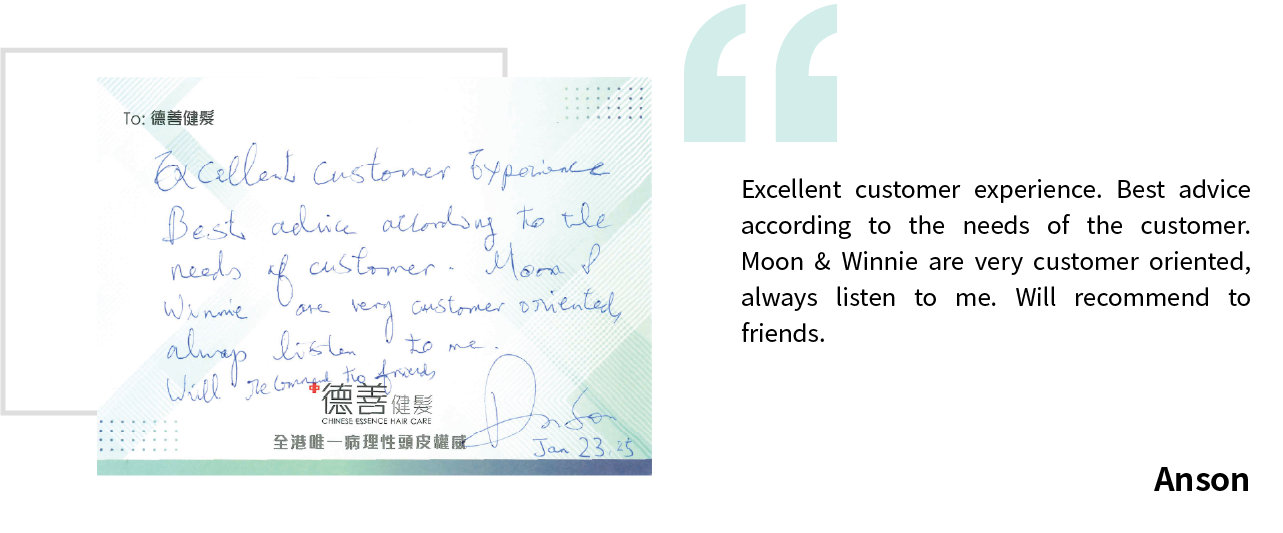 To: 德善健髮
Excellent Customer Experience
Best advice according to the
needs of customer. Moon &
Winnie are very customer oriented,
always listen to me.
Will recommend to friends
德善健髮
CHINESE ESSENCE HAIR CARE
全港唯一病理性頭皮權威
Anson
Jan 23. 25
Excellent customer experience. Best advice
according to the needs of the customer.
Moon & Winnie are very customer oriented,
always listen to me. Will recommend to
friends.
Anson